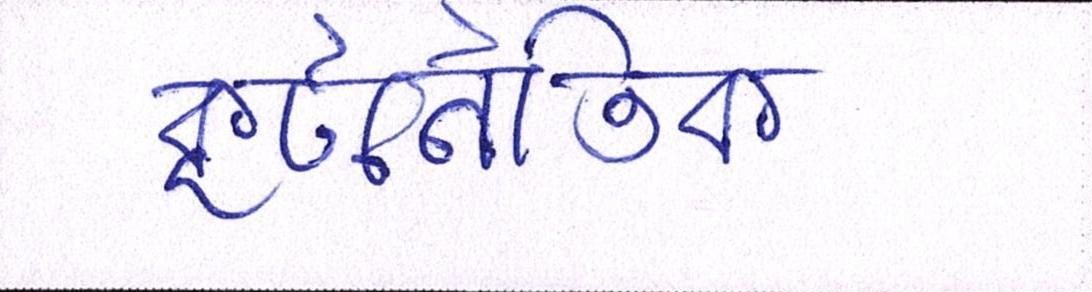 কূটনৈতিক